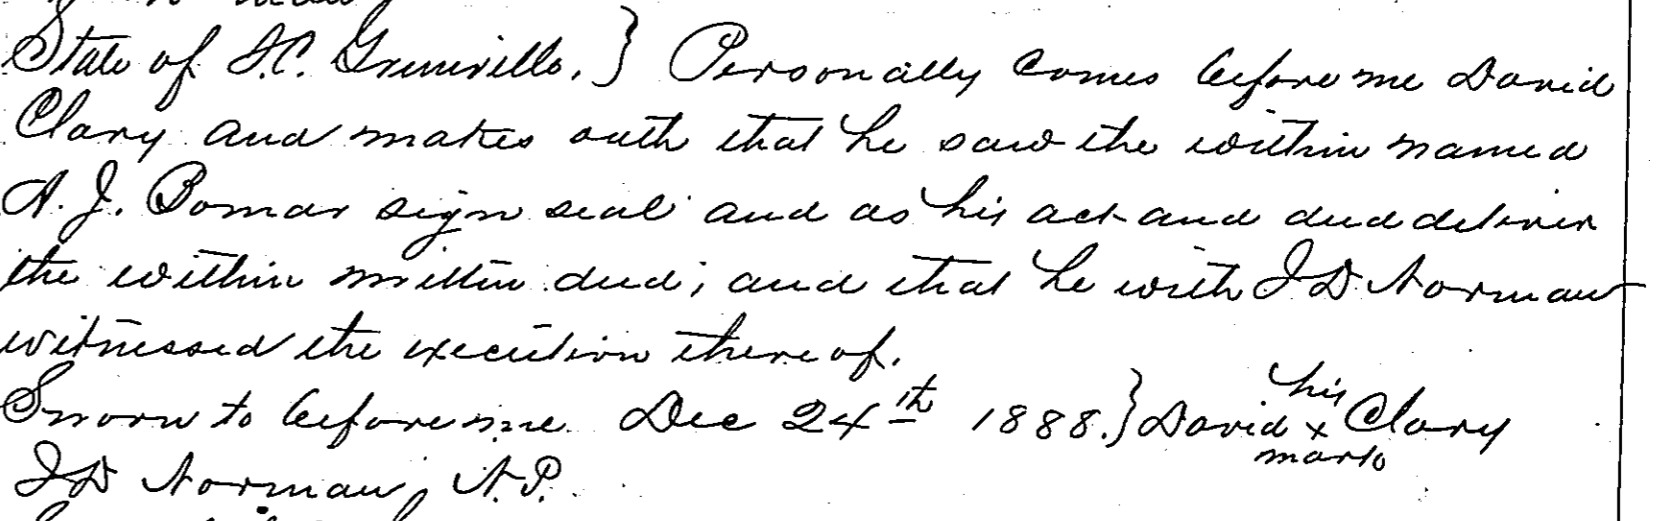 State of S.C. Greenville. } Personally comes before me David
Clary and makes oath that he saw the within named
A. J. Bomar sign seal and as his act and deed deliver
the within written deed; and that he with J D Norman
witnessed the execution thereof.
Sworn to before me Dec 24th 1888. } David his x mark Clary
J D Norman, N.P.